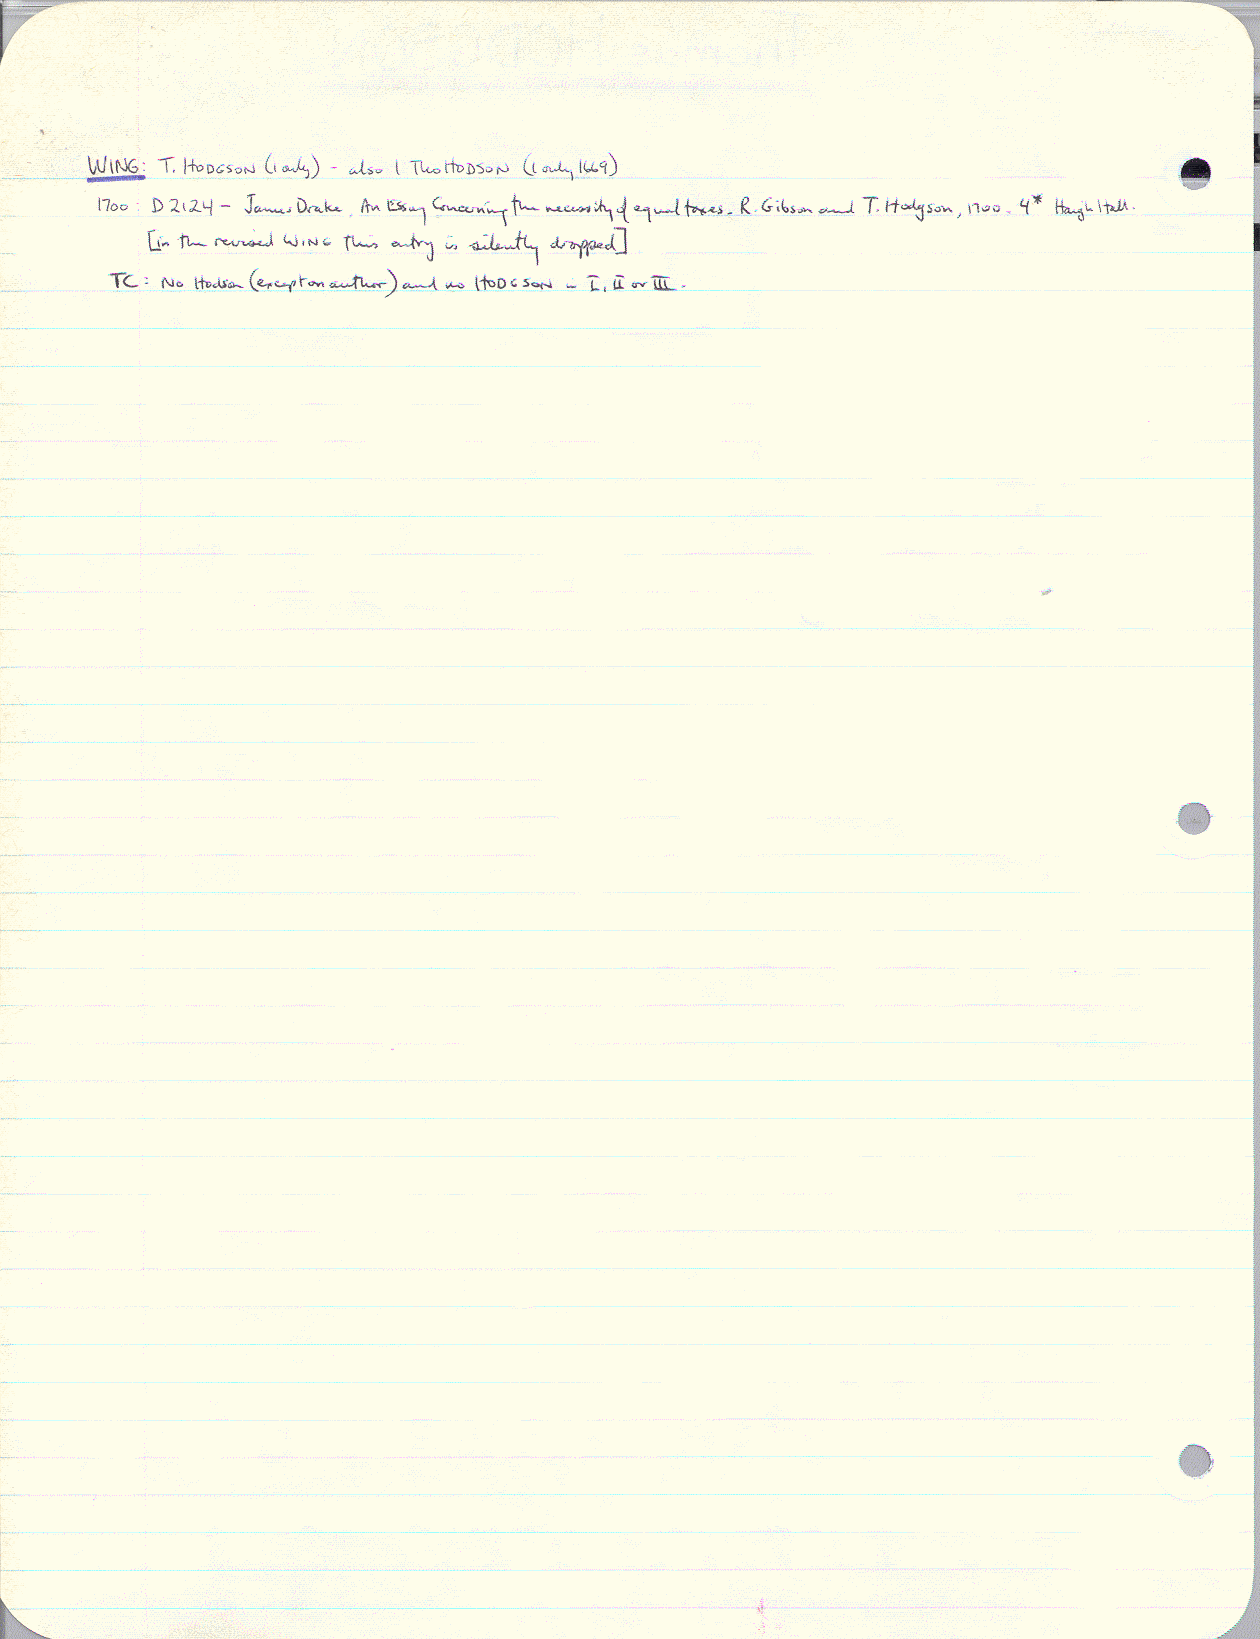 WING: T. HODGSON (1 only) - also 1 Tho HODSON (1 only, 1669)
1700: D2124 - James Drake. An Essay Concerning the necessity of equal taxes. R. Gibson and T. Hodgson, 1700. 4* Haigh Hall.
[in the revised WING this entry is silently dropped]
TC: No Hodson (except on author) and no HODGSON in I, II or III.